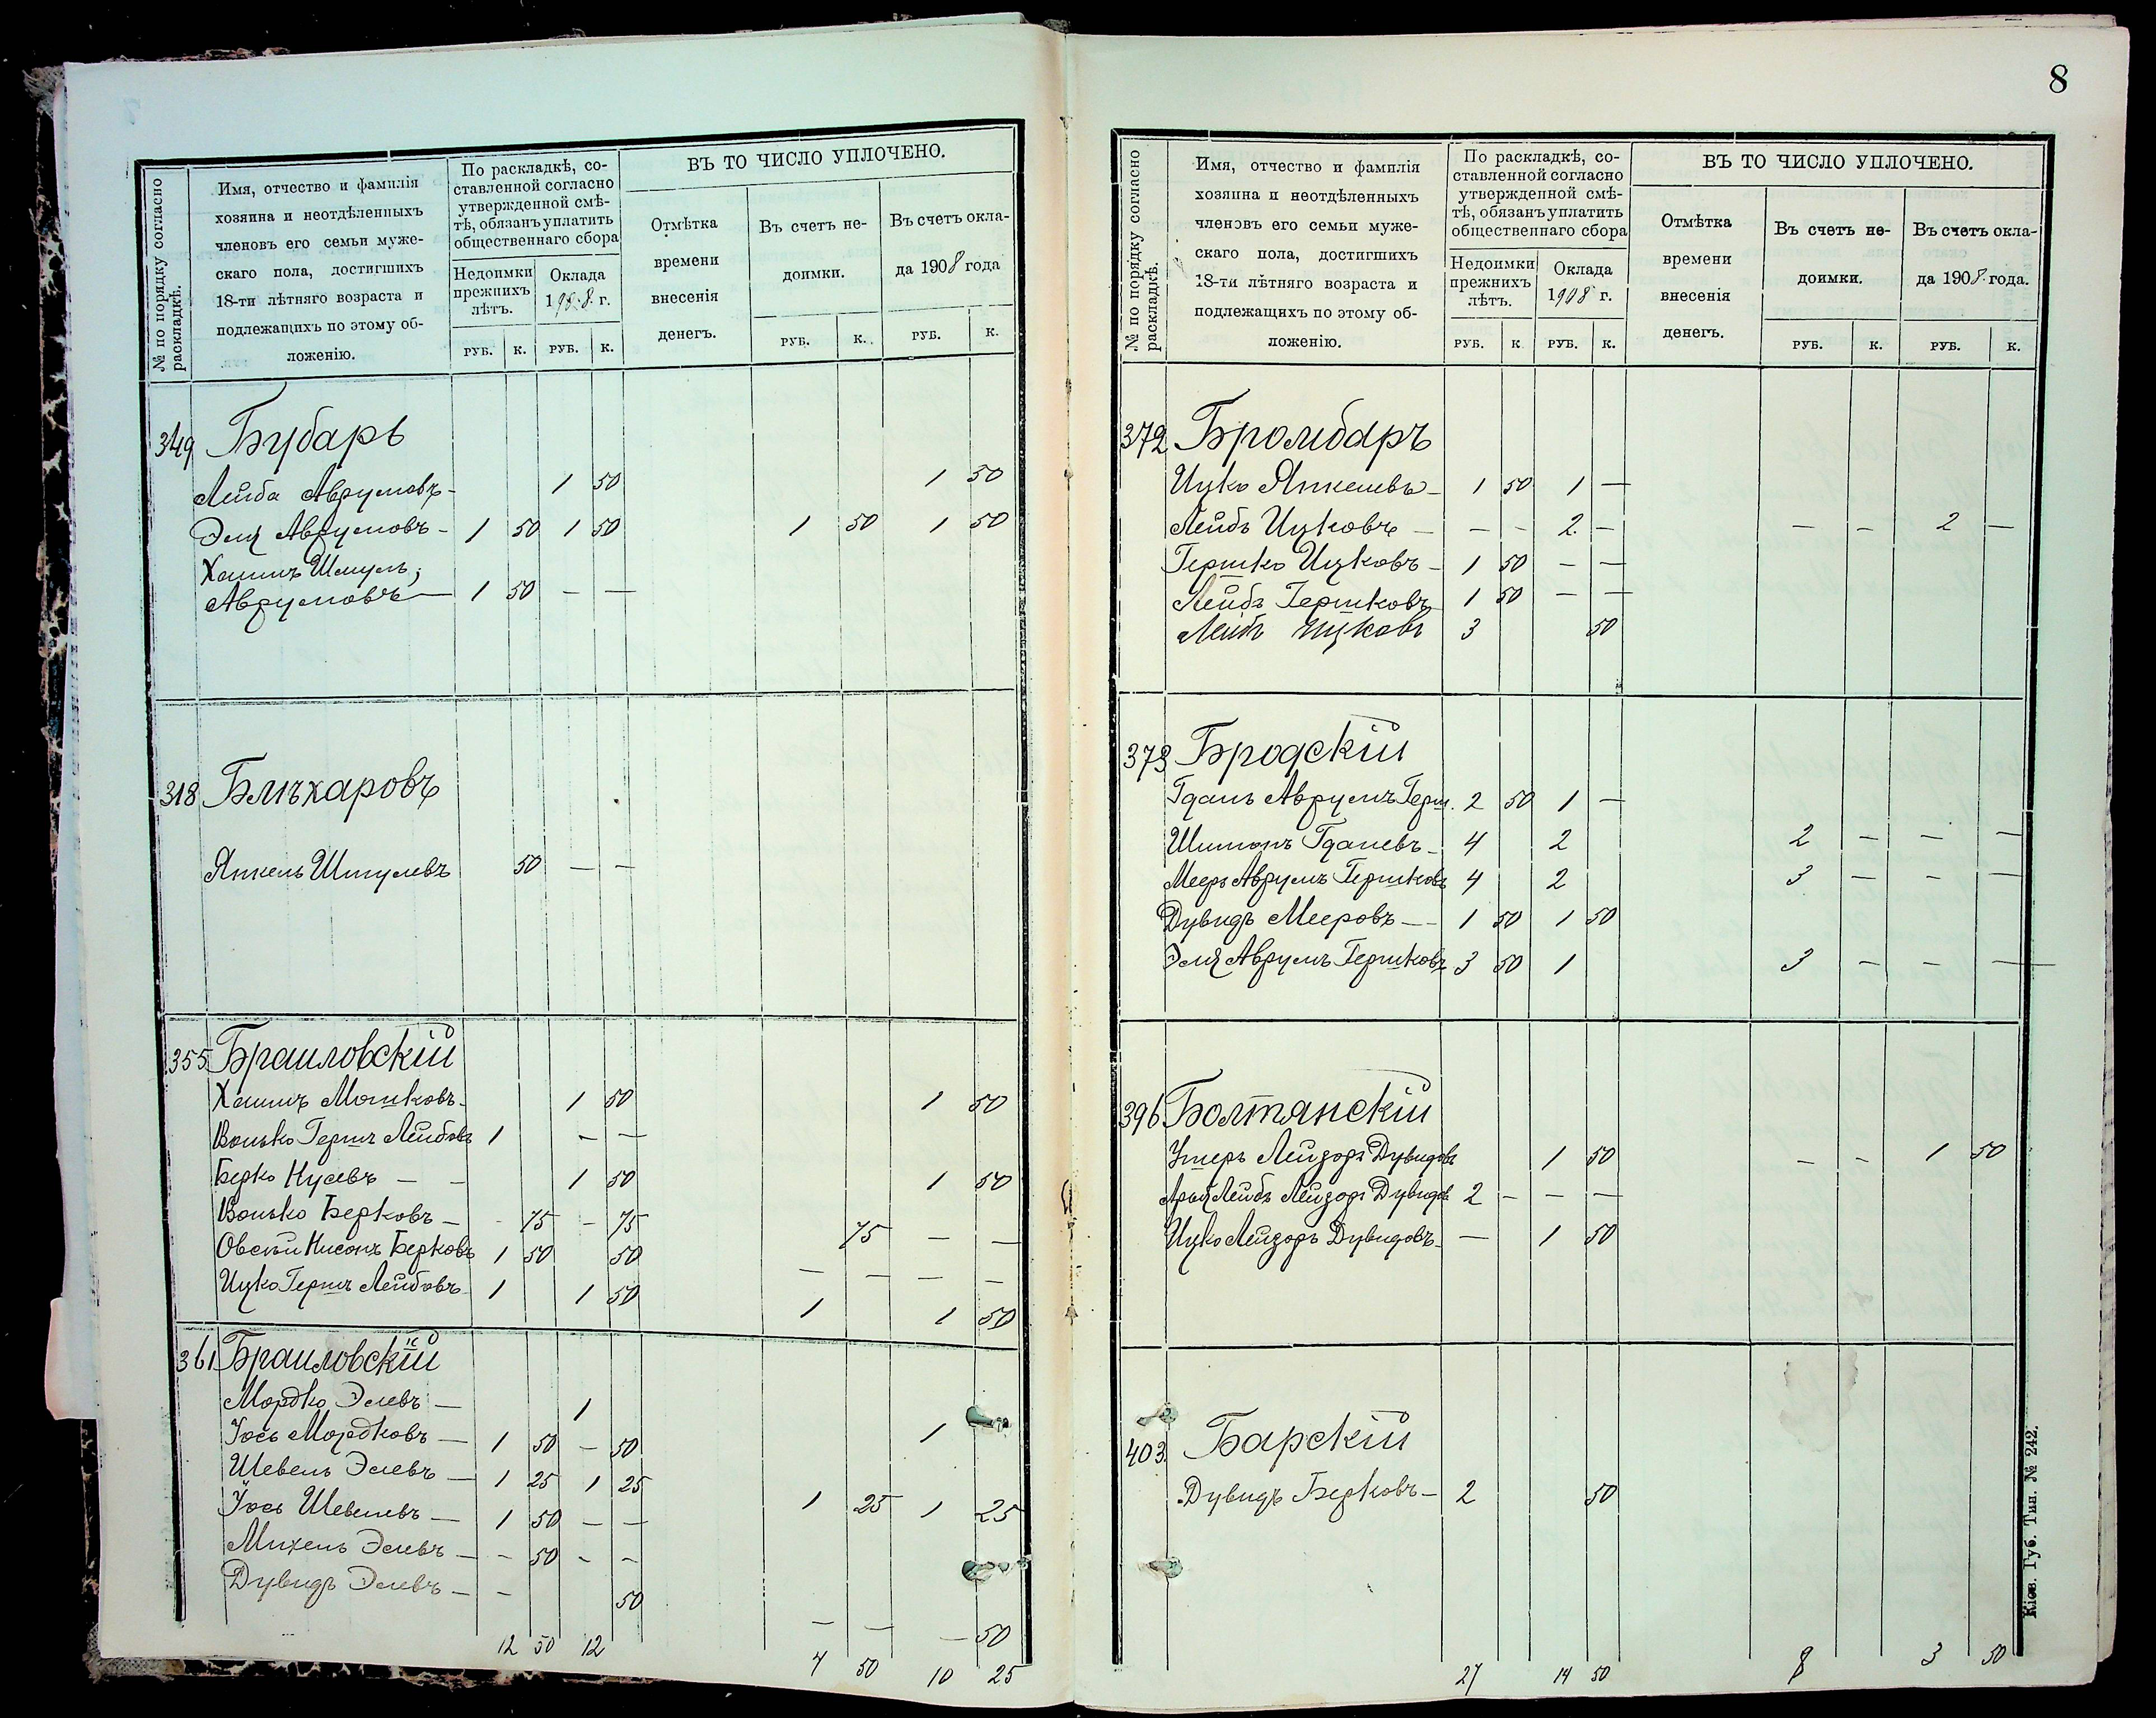 8
№ по порядку согласно раскладкѣ.
Имя, отчество и фамилія
хозяина и неотдѣленныхъ
членовъ его семьи муже-
скаго пола, достигшихъ
18-ти лѣтняго возраста и
подлежащихъ по этому об-
ложенію.
По раскладкѣ, со-
ставленной согласно
утвержденной смѣ-
тѣ, обязанъ уплатить
общественнаго сбора
Недоимки прежнихъ лѣтъ.
Оклада 1908 г.
РУБ. К. РУБ. К.
ВЪ ТО ЧИСЛО УПЛОЧЕНО.
Отмѣтка
времени
внесенія
денегъ.
Въ счетъ не-
доимки.
Въ счетъ окла-
да 1908 года
РУБ. К. РУБ. К.
349 Бубарь
Лейба Аврумовъ - 1 50 1 50
Эля Аврумовъ - 1 50 1 50 1 50 1 50
Хаимъ Шмуль,
Аврумовъ — 1 50 — —
318 Блѣхаровъ
Янкель Шмулевъ 50 — —
355 Браиловскій
Хаимъ Мошковъ - 1 50 1 50
Волько Гершъ Лейбовъ 1 — —
Берко Нусевъ — - 1 50 1 50
Волько Берковъ — - 75 - 75 75 — —
Овсѣй Нисонъ Берковъ 1 50 50 — — — —
Ицко Гершъ Лейбовъ 1 1 50 1 1 50
361 Браиловскій
Мордко Элевъ — 1 1
Іось Мордковъ — 1 50 — 50
Шевель Элевъ — 1 25 1 25 1 25 1 25
Іось Шевелевъ — 1 50 — —
Михель Элевъ — - 50 - -
Дувидъ Элевъ — - 50 — — — 50
12 50 12 4 50 10 25
№ по порядку согласно раскладкѣ.
Имя, отчество и фамилія
хозяина и неотдѣленныхъ
членовъ его семьи муже-
скаго пола, достигшихъ
18-ти лѣтняго возраста и
подлежащихъ по этому об-
ложенію.
По раскладкѣ, со-
ставленной согласно
утвержденной смѣ-
тѣ, обязанъ уплатить
общественнаго сбора
Недоимки прежнихъ лѣтъ.
Оклада 1908 г.
РУБ. К. РУБ. К.
ВЪ ТО ЧИСЛО УПЛОЧЕНО.
Отмѣтка
времени
внесенія
денегъ.
Въ счетъ не-
доимки.
Въ счетъ окла-
да 1908 года.
РУБ. К. РУБ. К.
372 Бромбаръ
Ицко Янкелевъ — 1 50 1 —
Лейбъ Ицковъ — — - 2 — — — 2 —
Гершко Ицковъ — 1 50 — —
Лейбъ Гершковъ 1 50 — —
Лейбъ Ицковъ 3 50
373 Бродскій
Гдаль Аврумъ Герш. 2 50 1 —
Шимонъ Гдалевъ - 4 2 2 — — —
Мееръ Аврумъ Гершковъ 4 2 3 — — —
Дувидъ Мееровъ — 1 50 1 50
Эля Аврумъ Гершковъ 3 50 1 3 — — —
396 Болтянскій
Ушеръ Лейзоръ Дувидовъ 1 50 — - 1 50
Арья Лейбъ Лейзоръ Дувидов 2 — — —
Ицко Лейзоръ Дувидовъ - — 1 50
403. Барскій
Дувидъ Берковъ — 2 50
27 14 50 8 3 50
Кіев. Губ. Тип. № 242.